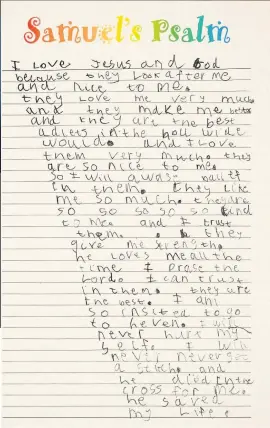 Samuel's Psalm
I love Jesus and God
because they look after me
and nice to me.
they love me very much
and they make me
and they are the best
in the holl wide
would. and I love
them very much. they
are so nice to me.
so I will
in them. they like
me so much. they are
so so so so so kind
to me. and I trust
them. they
give me strength.
he loves me all the
time I the
Lord. I can trust
in them. they are
the best. I am
so to go
to heven. I will
never hurt my
self. I will
never never
a and
he died in the
cross for me.
he saved
my life.